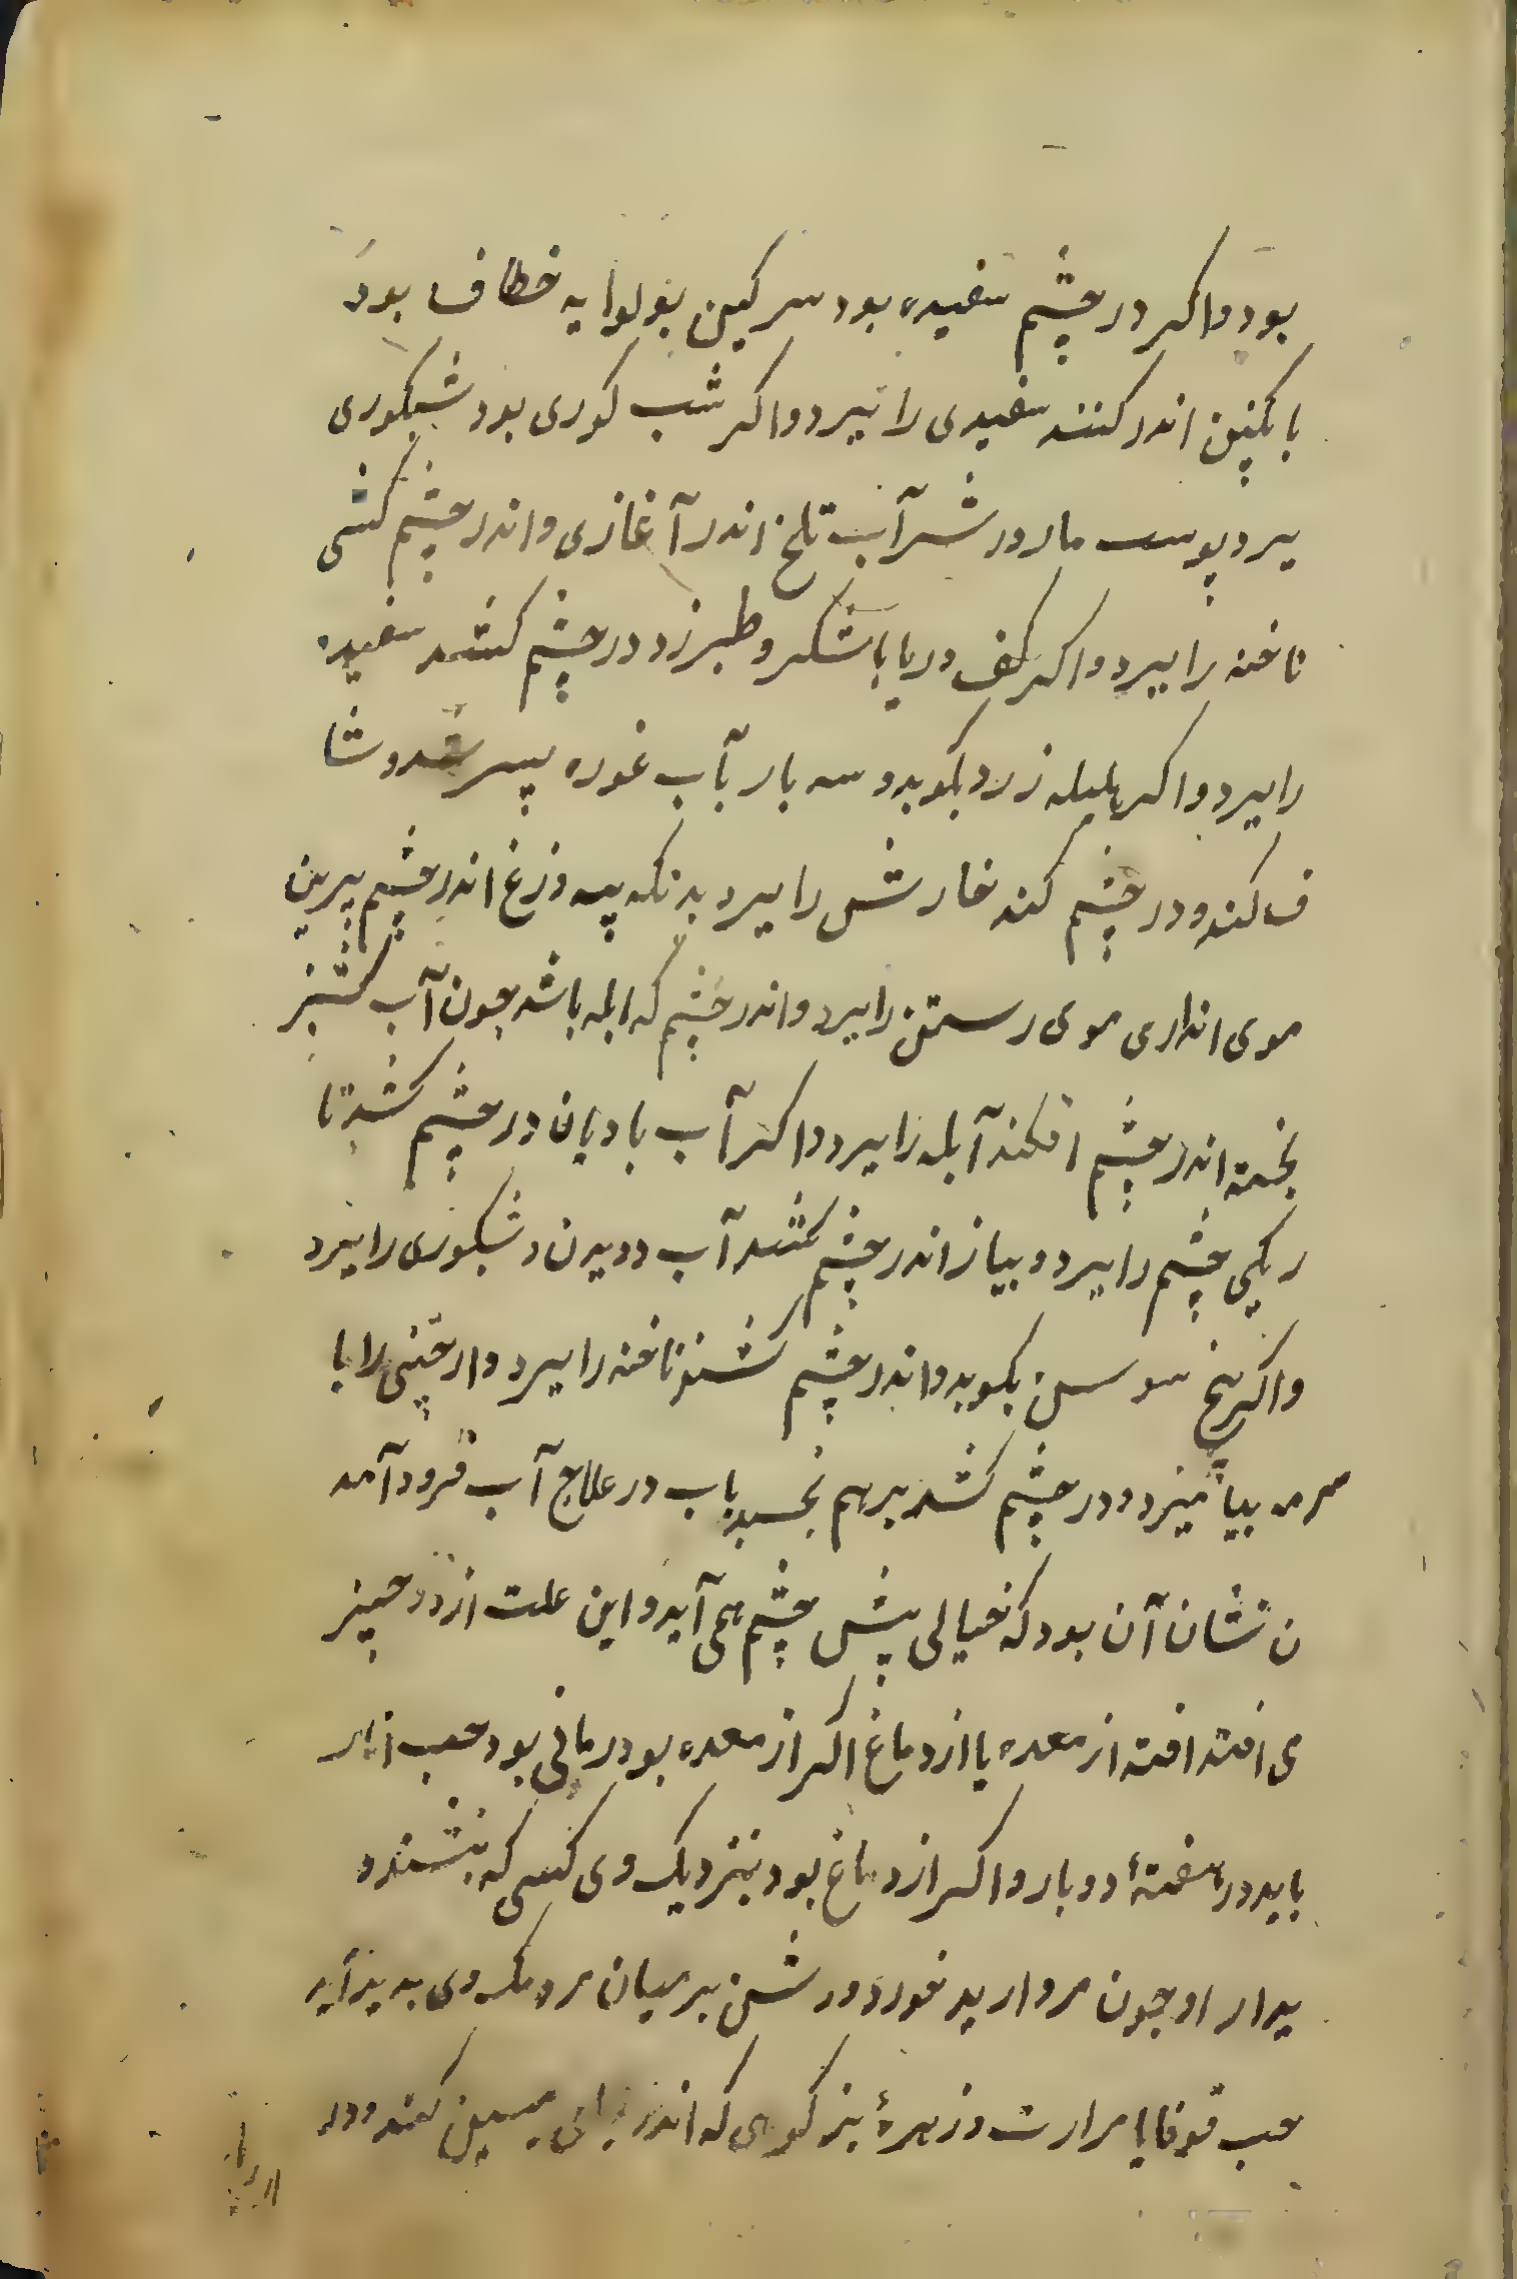 بود واکر در چشم سفیده بود سرکین بولوایه خطاف بود
بانکبین اندر کنند سفیدی را ببرد واکر شب کوری بود شبکوری
ببرد پوست مار در شرآب تلخ اندر آغازی واندر چشم کشی
ناخنه را ببرد واکر کف دریا باشکر وطبرزد در چشم کشد سفیده
را ببرد واکر هلیله زرد بکوبد و سه بار بآب غوره بپرشد وشا
ف کند ودر چشم کند خارش را ببرد بدنکه پیه وزغ اندر چشم برین
موی انداری موی رستن را ببرد واندر چشم که ابله باشد چون آب کشنیز
پخته اندر چشم افکند آبله را ببرد واکر آب بادیان در چشم کشد تا
ریکی چشم را ببرد و پیاز اندر چشم کشد آب دویدن و شبکوری را ببرد
واکر بیخ سوسن بکوبد واندر چشم کشد ناخنه را ببرد دارچینی را با
سرمه بیامیزد ودر چشم کشد برهم نجسبد باب در علاج آب فرود آمد
ن نشان آن بود که خیالی پیش چشم همی آید واین علت از دو چیز
ی افتد افتد از معده یا از دماغ اکر از معده بود درمانی بود حب ایار
باید در هفتهٔ دوبار واکر از دماغ بود بنزدیک وی کسی که بنشند و
یدار او چون مروارید خورد ورشن بر میان مردمک وی پدید آید
حب قوفایا مرارت وزهرهٔ بز کوهی که اندر کند ودر